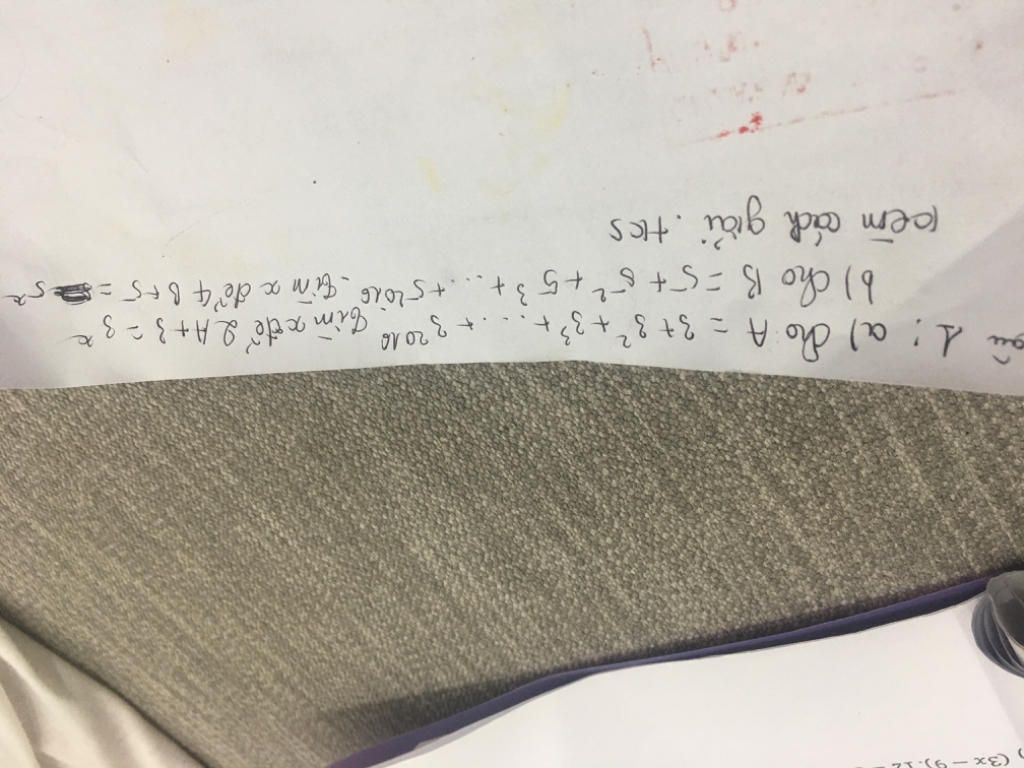 câu 1: a) cho A = 3 + 3² + 3³ + ... + 3²⁰¹⁰. Tìm x để 2A + 3 = 3ˣ
b) Cho B = 5 + 5² + 5³ + ... + 5²⁰¹⁰. Tìm x để 4B + 5 = 5ˣ
kèm cách giải. tks
(3x - 9).12